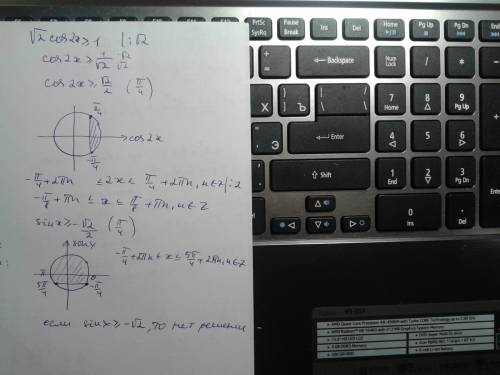 √2 cos2x ≥ 1 | : √2
cos2x ≥ 1/√2 · √2/√2
cos2x ≥ √2/2 (π/4)
π/4
cos2x
-π/4
-π/4 + 2πn ≤ 2x ≤ π/4 + 2πn, n∈Z | : 2
-π/8 + πn ≤ x ≤ π/8 + πn, n∈Z
sinx ≥ -√2/2 (π/4)
sinx
-π/4 + 2πn ≤ x ≤ 5π/4 + 2πn, n∈Z
π
0
5π/4
-π/4
если sinx ≥ -√2, то нет решения
PrtSc
SysRq
Pause
Break
Ins
Del
Home
Pg Up
Pg Dn
End
+
=
Backspace
Num
Lock
/
*
-
Х
Ъ
7
Home
8
9
Pg Up
+
Э
Enter
4
5
6
Shift
1
End
2
3
Pg Dn
0
Ins
.
Del